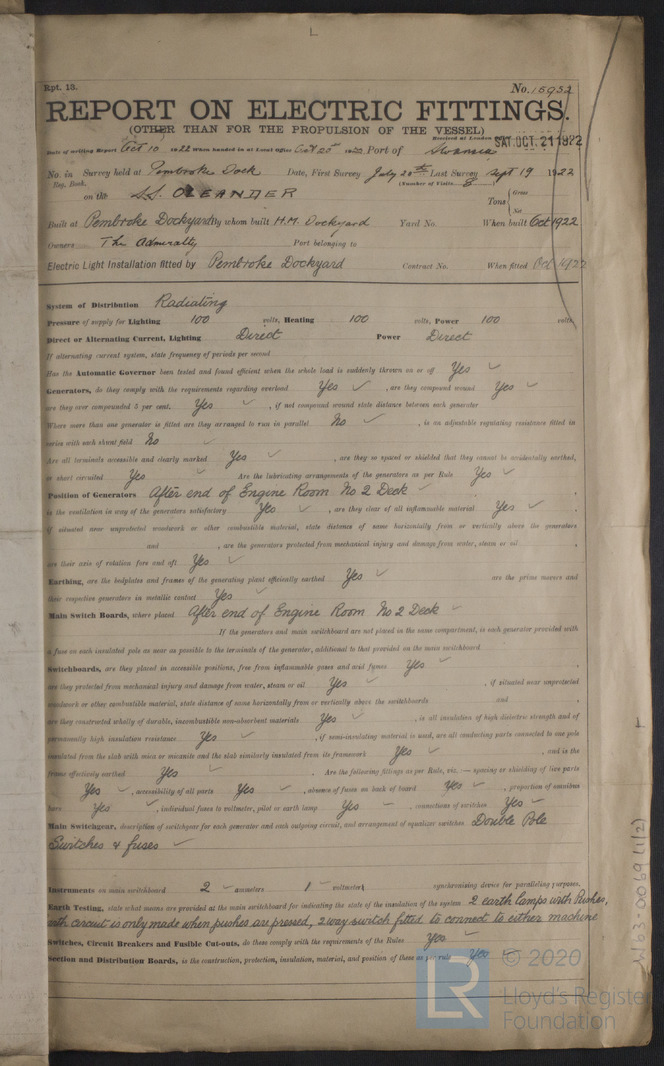 Rpt. 13.
No. 15952
REPORT ON ELECTRIC FITTINGS.
(OTHER THAN FOR THE PROPULSION OF THE VESSEL)
Received at London SAT. OCT. 21 1922
Date of writing Report Oct 10 1922 When handed in at Local Office Oct 20 1922 Port of Swansea
No. in Survey held at Pembroke Dock Date, First Survey July 28th Last Survey Sept 19 1922
Reg. Book. (Number of Visits 8
on the S.S. OLEANDER Tons Gross
Net
Built at Pembroke Dockyard By whom built H.M. Dockyard Yard No. When built Oct 1922
Owners The Admiralty Port belonging to
Electric Light Installation fitted by Pembroke Dockyard Contract No. When fitted Oct 1922
System of Distribution Radiating
Pressure of supply for Lighting 100 volts, Heating 100 volts, Power 100 volts.
Direct or Alternating Current, Lighting Direct Power Direct
If alternating current system, state frequency of periods per second
Has the Automatic Governor been tested and found efficient when the whole load is suddenly thrown on or off Yes
Generators, do they comply with the requirements regarding overload Yes , are they compound wound Yes
are they over compounded 5 per cent. Yes , if not compound wound state distance between each generator
Where more than one generator is fitted are they arranged to run in parallel No , is an adjustable regulating resistance fitted in
series with each shunt field No
Are all terminals accessible and clearly marked Yes , are they so spaced or shielded that they cannot be accidentally earthed,
or short circuited Yes Are the lubricating arrangements of the generators as per Rule Yes
Position of Generators After end of Engine Room No 2 Deck
is the ventilation in way of the generators satisfactory Yes , are they clear of all inflammable material Yes
if situated near unprotected woodwork or other combustible material, state distance of same horizontally from or vertically above the generators
and , are the generators protected from mechanical injury and damage from water, steam or oil
are their axis of rotation fore and aft Yes
Earthing, are the bedplates and frames of the generating plant efficiently earthed Yes are the prime movers and
their respective generators in metallic contact Yes
Main Switch Boards, where placed After end of Engine Room No 2 Deck
If the generators and main switchboard are not placed in the same compartment, is each generator provided with
a fuse on each insulated pole as near as possible to the terminals of the generator, additional to that provided on the main switchboard
Switchboards, are they placed in accessible positions, free from inflammable gases and acid fumes Yes
are they protected from mechanical injury and damage from water, steam or oil Yes , if situated near unprotected
woodwork or other combustible material, state distance of same horizontally from or vertically above the switchboards and
are they constructed wholly of durable, incombustible non-absorbent materials Yes , is all insulation of high dielectric strength and of
permanently high insulation resistance Yes , if semi-insulating material is used, are all conducting parts connected to one pole
insulated from the slab with mica or micanite and the slab similarly insulated from its framework Yes , and is the
frame effectively earthed Yes . Are the following fittings as per Rule, viz. — spacing or shielding of live parts
Yes , accessibility of all parts Yes , absence of fuses on back of board Yes , proportion of omnibus
bars Yes , individual fuses to voltmeter, pilot or earth lamp Yes , connections of switches Yes
Main Switchgear, description of switchgear for each generator and each outgoing circuit, and arrangement of equalizer switches Double Pole
Switches & fuses
Instruments on main switchboard 2 ammeters 1 voltmeter synchronising device for paralleling purposes.
Earth Testing, state what means are provided at the main switchboard for indicating the state of the insulation of the system 2 earth lamps with Pushes,
with circuit is only made when pushes are pressed, 2 way switch fitted to connect to either machine
Switches, Circuit Breakers and Fusible Cut-outs, do these comply with the requirements of the Rules Yes
Section and Distribution Boards, is the construction, protection, insulation, material, and position of these as per rule Yes
W163-0069 (1/2)
LR © 2020
Lloyd's Register
Foundation